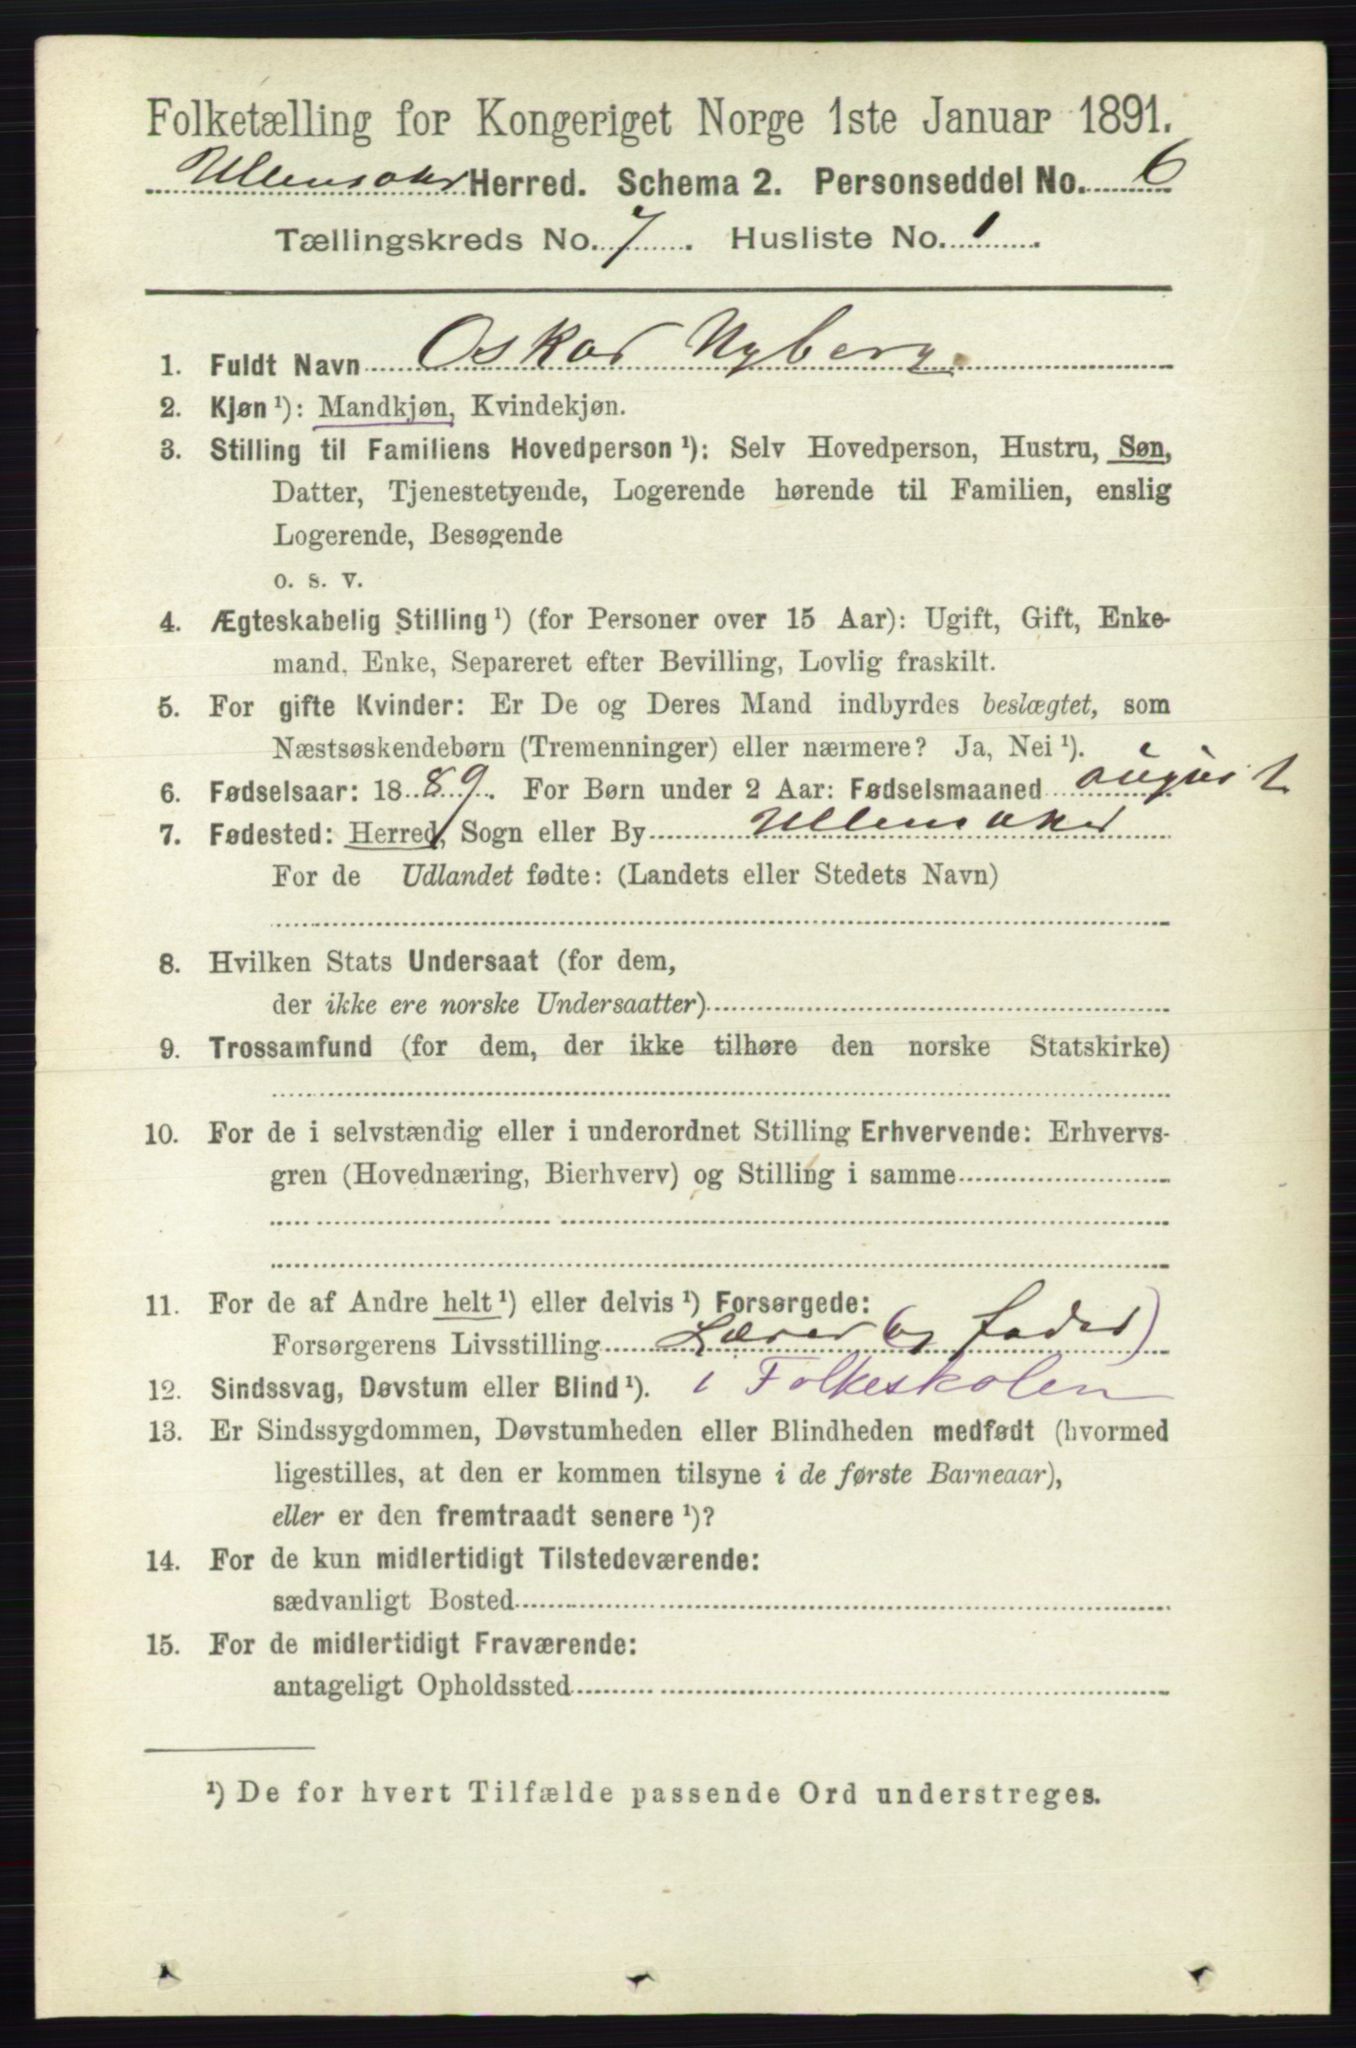 Folketælling for Kongeriget Norge 1ste Januar 1891.
Ullensaker Herred. Schema 2. Personseddel No. 6
Tællingskreds No. 7. Husliste No. 1.
1. Fuldt Navn Oskar Nyberg.
2. Kjøn ¹): Mandkjøn, Kvindekjøn.
3. Stilling til Familiens Hovedperson ¹): Selv Hovedperson, Hustru, Søn,
Datter, Tjenestetyende, Logerende hørende til Familien, enslig
Logerende, Besøgende
o. s. v.
4. Ægteskabelig Stilling ¹) (for Personer over 15 Aar): Ugift, Gift, Enke-
mand, Enke, Separeret efter Bevilling, Lovlig fraskilt.
5. For gifte Kvinder: Er De og Deres Mand indbyrdes beslægtet, som
Næstsøskendebørn (Tremenninger) eller nærmere? Ja, Nei ¹).
6. Fødselsaar: 1889. For Børn under 2 Aar: Fødselsmaaned august
7. Fødested: Herred, Sogn eller By Ullensaker
For de Udlandet fødte: (Landets eller Stedets Navn)
8. Hvilken Stats Undersaat (for dem,
der ikke ere norske Undersaatter)
9. Trossamfund (for dem, der ikke tilhøre den norske Statskirke)
10. For de i selvstændig eller i underordnet Stilling Erhvervende: Erhvervs-
gren (Hovednæring, Bierhverv) og Stilling i samme
11. For de af Andre helt ¹) eller delvis ¹) Forsørgede:
Forsørgerens Livsstilling Lærer (og fader)
12. Sindssvag, Døvstum eller Blind ¹). i Folkeskolen
13. Er Sindssygdommen, Døvstumheden eller Blindheden medfødt (hvormed
ligestilles, at den er kommen tilsyne i de første Barneaar),
eller er den fremtraadt senere ¹)?
14. For de kun midlertidigt Tilstedeværende:
sædvanligt Bosted
15. For de midlertidigt Fraværende:
antageligt Opholdssted
¹) De for hvert Tilfælde passende Ord understreges.